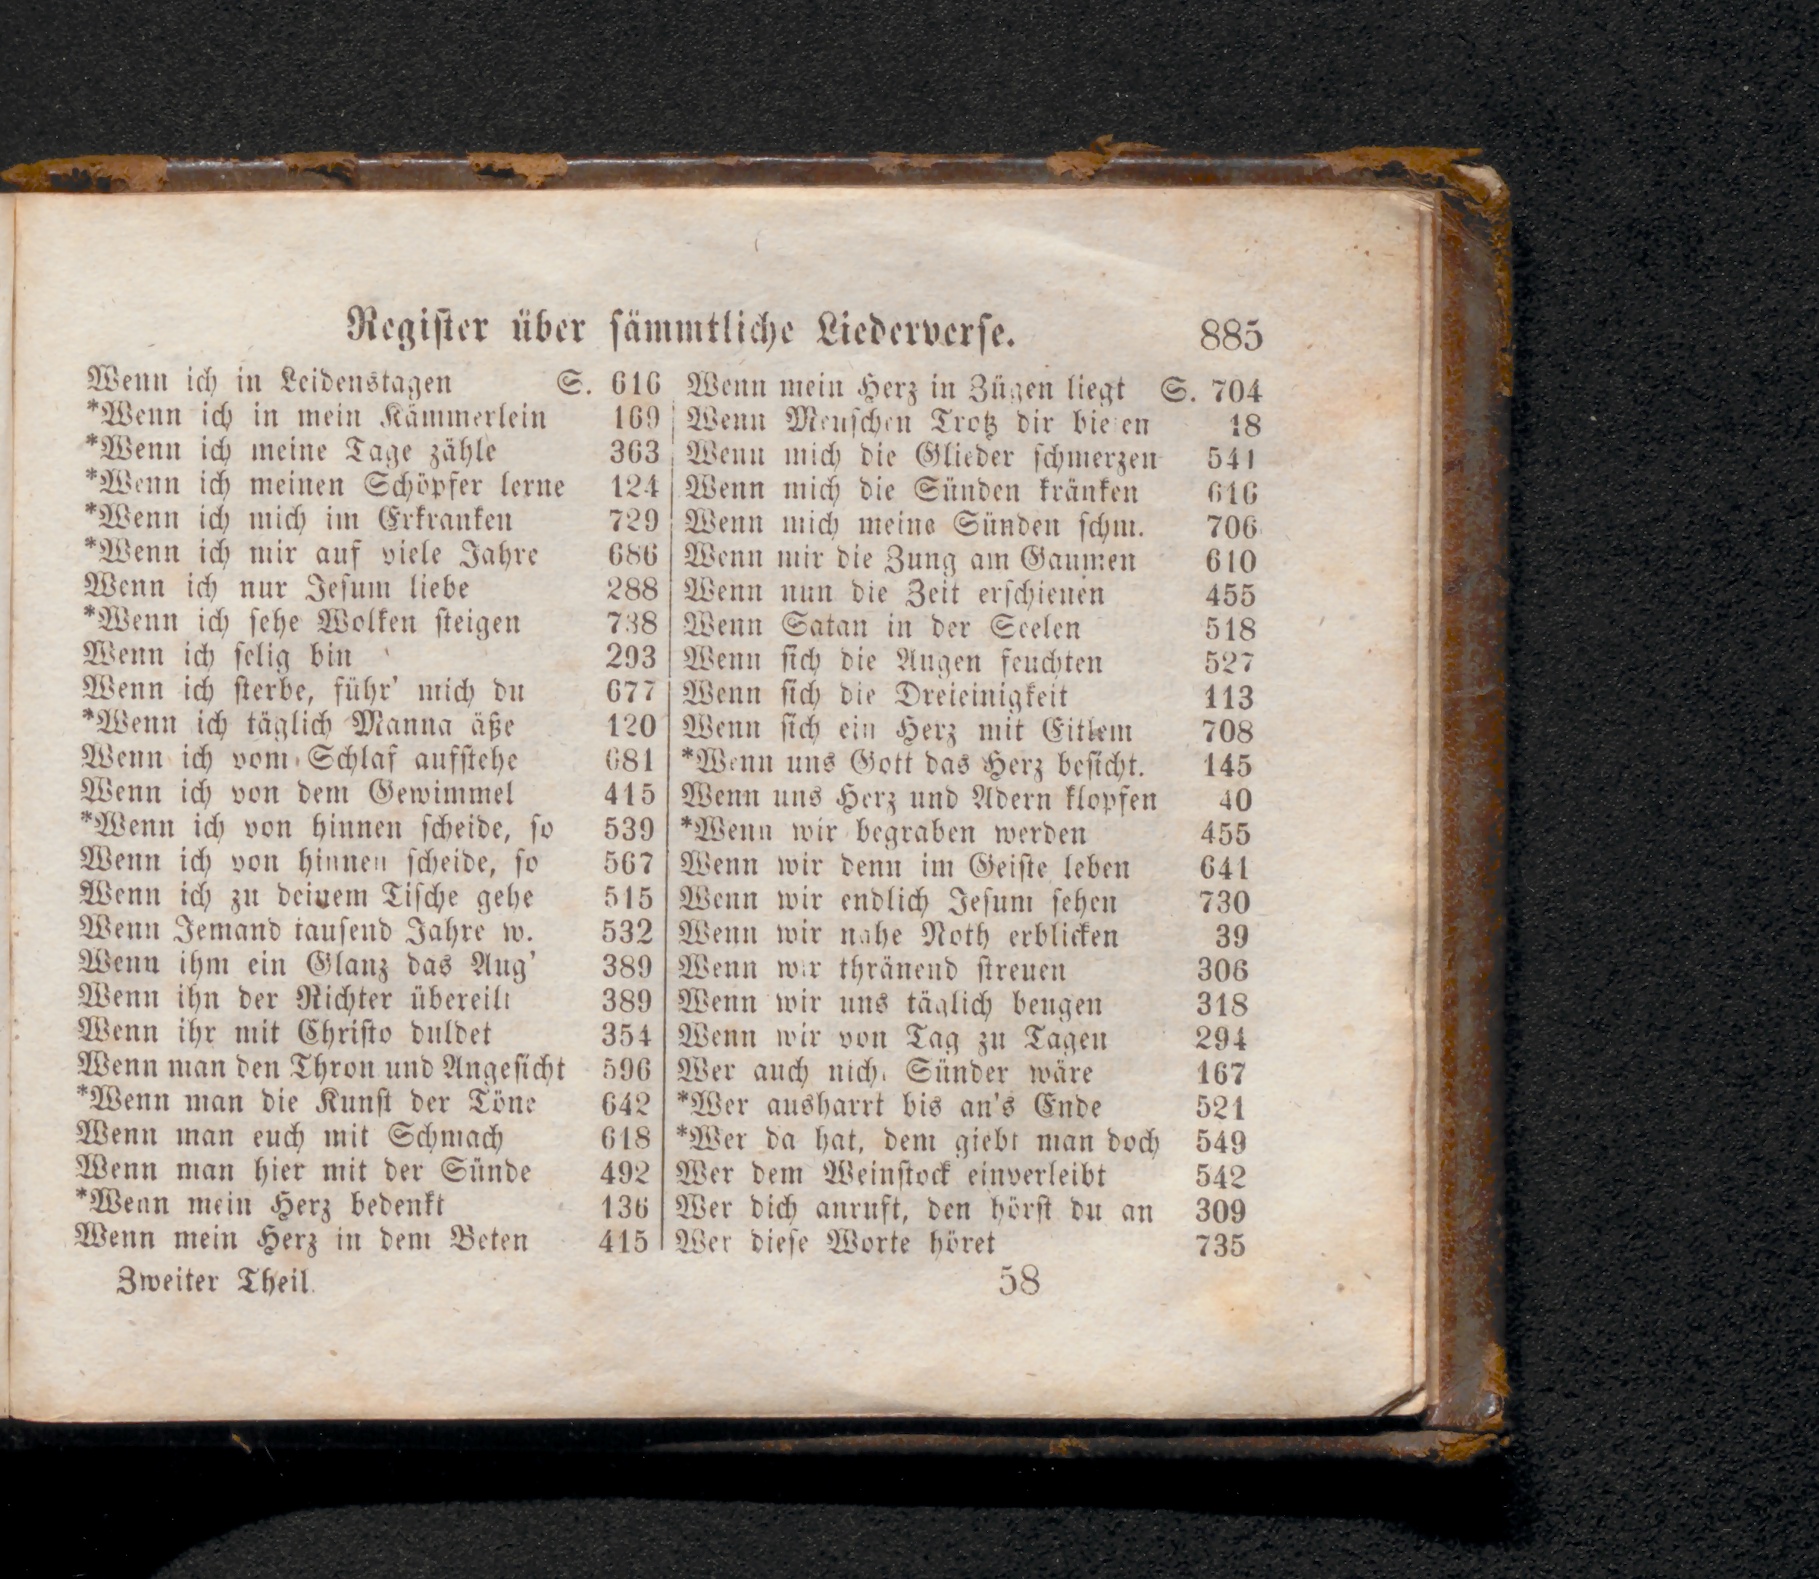 Register über sämmtliche Liederverse. 885
Wenn ich in Leidenstagen S. 616
*Wenn ich in mein Kämmerlein 169
*Wenn ich meine Tage zähle 363
*Wenn ich meinen Schöpfer lerne 124
*Wenn ich mich im Erkranken 729
*Wenn ich mir auf viele Jahre 686
Wenn ich nur Jesum liebe 288
*Wenn ich sehe Wolken steigen 738
Wenn ich selig bin 293
Wenn ich sterbe, führ' mich du 677
*Wenn ich täglich Manna äße 120
Wenn ich vom Schlaf aufstehe 681
Wenn ich von dem Gewimmel 415
*Wenn ich von hinnen scheide, so 539
Wenn ich von hinnen scheide, so 567
Wenn ich zu deinem Tische gehe 515
Wenn Jemand tausend Jahre w. 532
Wenn ihm ein Glanz das Aug' 389
Wenn ihn der Richter übereilt 389
Wenn ihr mit Christo duldet 354
Wenn man den Thron und Angesicht 596
*Wenn man die Kunst der Töne 642
Wenn man euch mit Schmach 618
Wenn man hier mit der Sünde 492
*Wenn mein Herz bedenkt 136
Wenn mein Herz in dem Beten 415
Wenn mein Herz in Zügen liegt S. 704
Wenn Menschen Trotz dir bieten 18
Wenn mich die Glieder schmerzen 541
Wenn mich die Sünden kränken 616
Wenn mich meine Sünden schm. 706
Wenn mir die Zung am Gaumen 610
Wenn nun die Zeit erschienen 455
Wenn Satan in der Seelen 518
Wenn sich die Augen feuchten 527
Wenn sich die Dreieinigkeit 113
Wenn sich ein Herz mit Eitlem 708
*Wenn uns Gott das Herz besicht. 145
Wenn uns Herz und Adern klopfen 40
*Wenn wir begraben werden 455
Wenn wir denn im Geiste leben 641
Wenn wir endlich Jesum sehen 730
Wenn wir nahe Noth erblicken 39
Wenn wir thränend streuen 306
Wenn wir uns täglich beugen 318
Wenn wir von Tag zu Tagen 294
Wer auch nicht Sünder wäre 167
*Wer ausharrt bis an's Ende 521
*Wer da hat, dem giebt man doch 549
Wer dem Weinstock einverleibt 542
Wer dich anruft, den hörst du an 309
Wer diese Worte höret 735
Zweiter Theil. 58